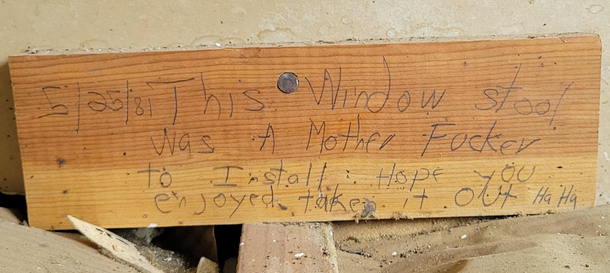 5/25/81 This Window stool
Was A Mother Fucker
to Install. Hope you
enjoyed taken it OUt Ha Ha